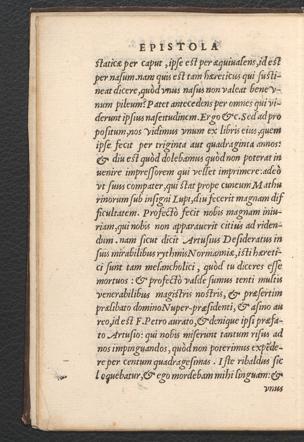 EPISTOLA
staticæ per caput, ipse est per æquiualens, id est
per nasum. nam quis est tam hæreticus qui susti-
neat dicere, quòd vnus nasus non valeat bene v-
num pileum? Patet antecedens per omnes qui vi-
derunt ipsius nasetudinem. Ergo &c. Sed ad pro
positum, nos vidimus vnum ex libris eius, quem
ipse fecit per triginta aut quadraginta annos:
& diu est quòd dolebamus quòd non poterat in
uenire impressorem qui vellet imprimere: adeò
vt suus compater, qui stat prope cuneum Mathu
rinorum sub insigni Lupi, diu fecerit magnam dif
ficultatem. Profectò fecit nobis magnam iniu-
riam, qui nobis non apparauerit citius ad riden-
dum. nam sicut dicit Artusius Desideratus in
suis mirabilibus rythmis Normanniæ, isti hæreti-
ci sunt tam melancholici, quòd tu diceres esse
mortuos: & profectò valde sumus tenti multis
venerabilibus magistris nostris, & præsertim
prælibato domino Nuper-præsidenti, & asino au
reo, id est F. Petro aurato, & denique ipsi præfa-
to Artusio: qui nobis miserunt tantum risus ad
nos impinguandos, quòd non poterimus expēde-
re per centum quadragesimas. Iste ribaldus sic
loquebatur, & ego mordebam mihi linguam: &
vnus